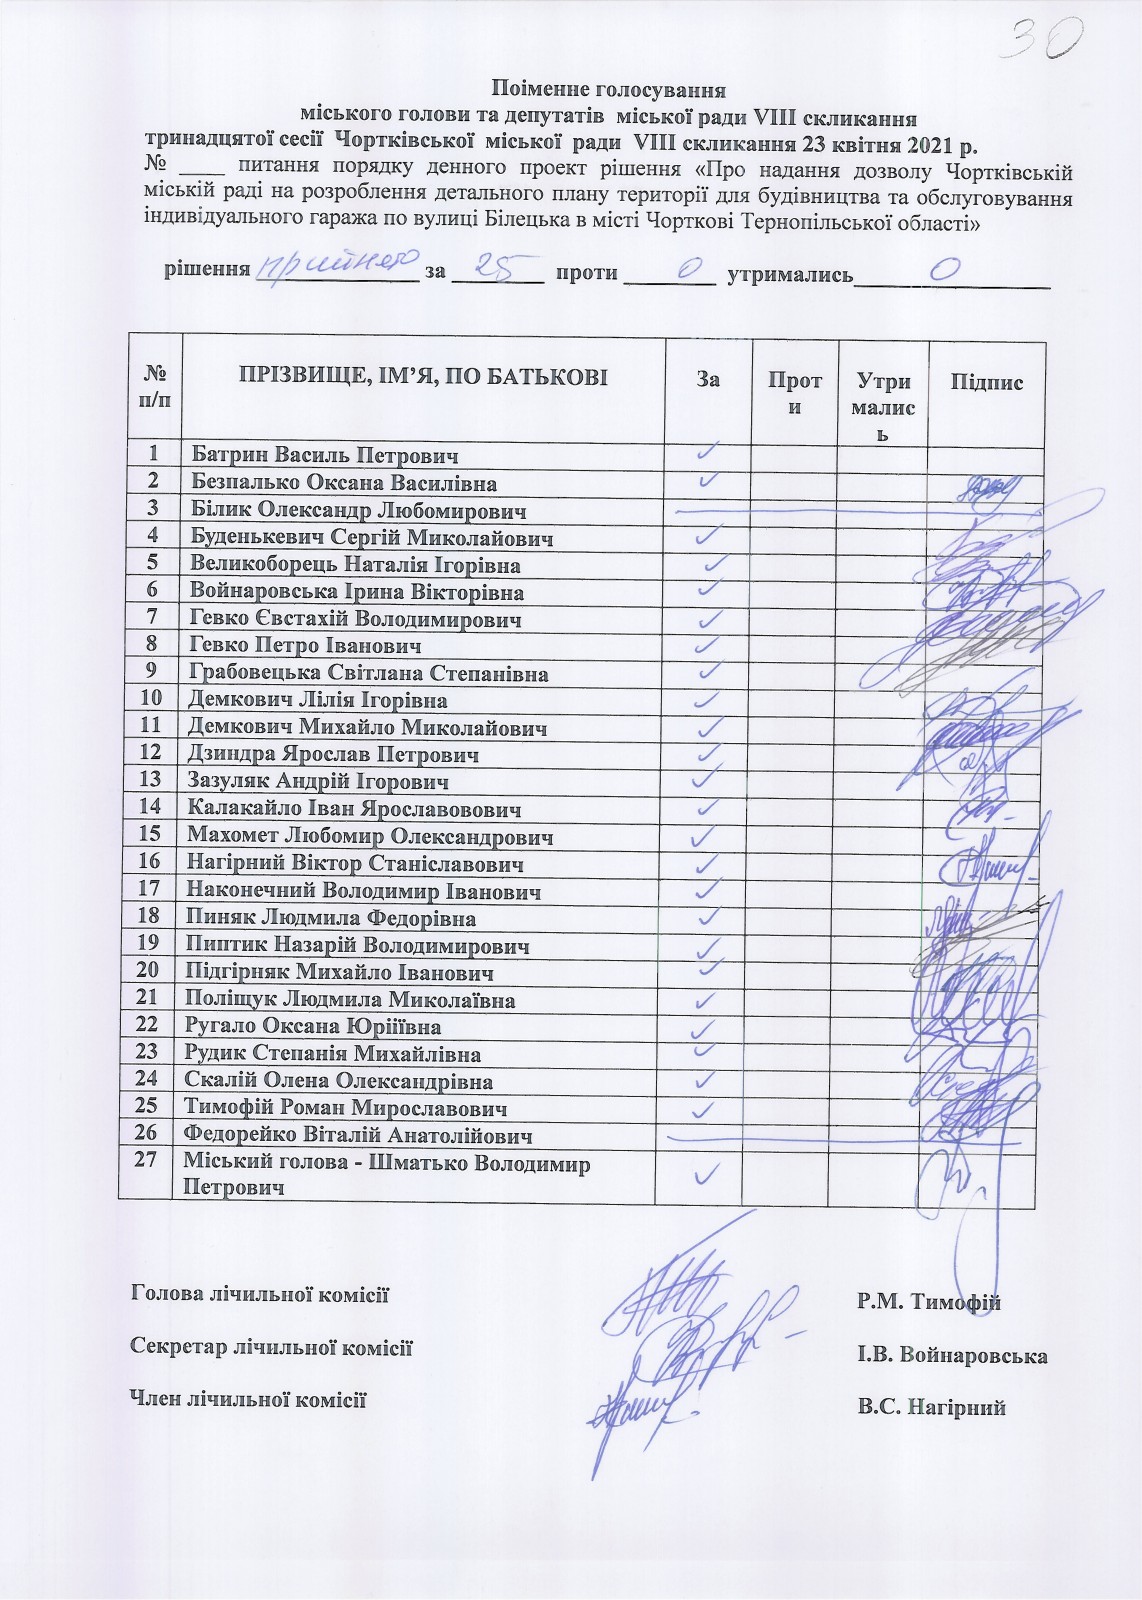 30
Поіменне голосування
міського голови та депутатів міської ради VIII скликання
тринадцятої сесії Чортківської міської ради VIII скликання 23 квітня 2021 р.
№ ____ питання порядку денного проект рішення «Про надання дозволу Чортківській
міській раді на розроблення детального плану території для будівництва та обслуговування
індивідуального гаража по вулиці Білецька в місті Чорткові Тернопільської області»
рішення прийнято за 25 проти 0 утримались 0
№ п/п ПРІЗВИЩЕ, ІМ’Я, ПО БАТЬКОВІ За Проти Утримались Підпис
1 Батрин Василь Петрович ✓
2 Безпалько Оксана Василівна ✓
3 Білик Олександр Любомирович
4 Буденькевич Сергій Миколайович ✓
5 Великоборець Наталія Ігорівна ✓
6 Войнаровська Ірина Вікторівна ✓
7 Гевко Євстахій Володимирович ✓
8 Гевко Петро Іванович ✓
9 Грабовецька Світлана Степанівна ✓
10 Демкович Лілія Ігорівна ✓
11 Демкович Михайло Миколайович ✓
12 Дзиндра Ярослав Петрович ✓
13 Зазуляк Андрій Ігорович ✓
14 Калакайло Іван Ярославовович ✓
15 Махомет Любомир Олександрович ✓
16 Нагірний Віктор Станіславович ✓
17 Наконечний Володимир Іванович ✓
18 Пиняк Людмила Федорівна ✓
19 Пиптик Назарій Володимирович ✓
20 Підгірняк Михайло Іванович ✓
21 Поліщук Людмила Миколаївна ✓
22 Ругало Оксана Юріїївна ✓
23 Рудик Степанія Михайлівна ✓
24 Скалій Олена Олександрівна ✓
25 Тимофій Роман Мирославович ✓
26 Федорейко Віталій Анатолійович
27 Міський голова - Шматько Володимир
Петрович ✓
Голова лічильної комісії Р.М. Тимофій
Секретар лічильної комісії І.В. Войнаровська
Член лічильної комісії В.С. Нагірний